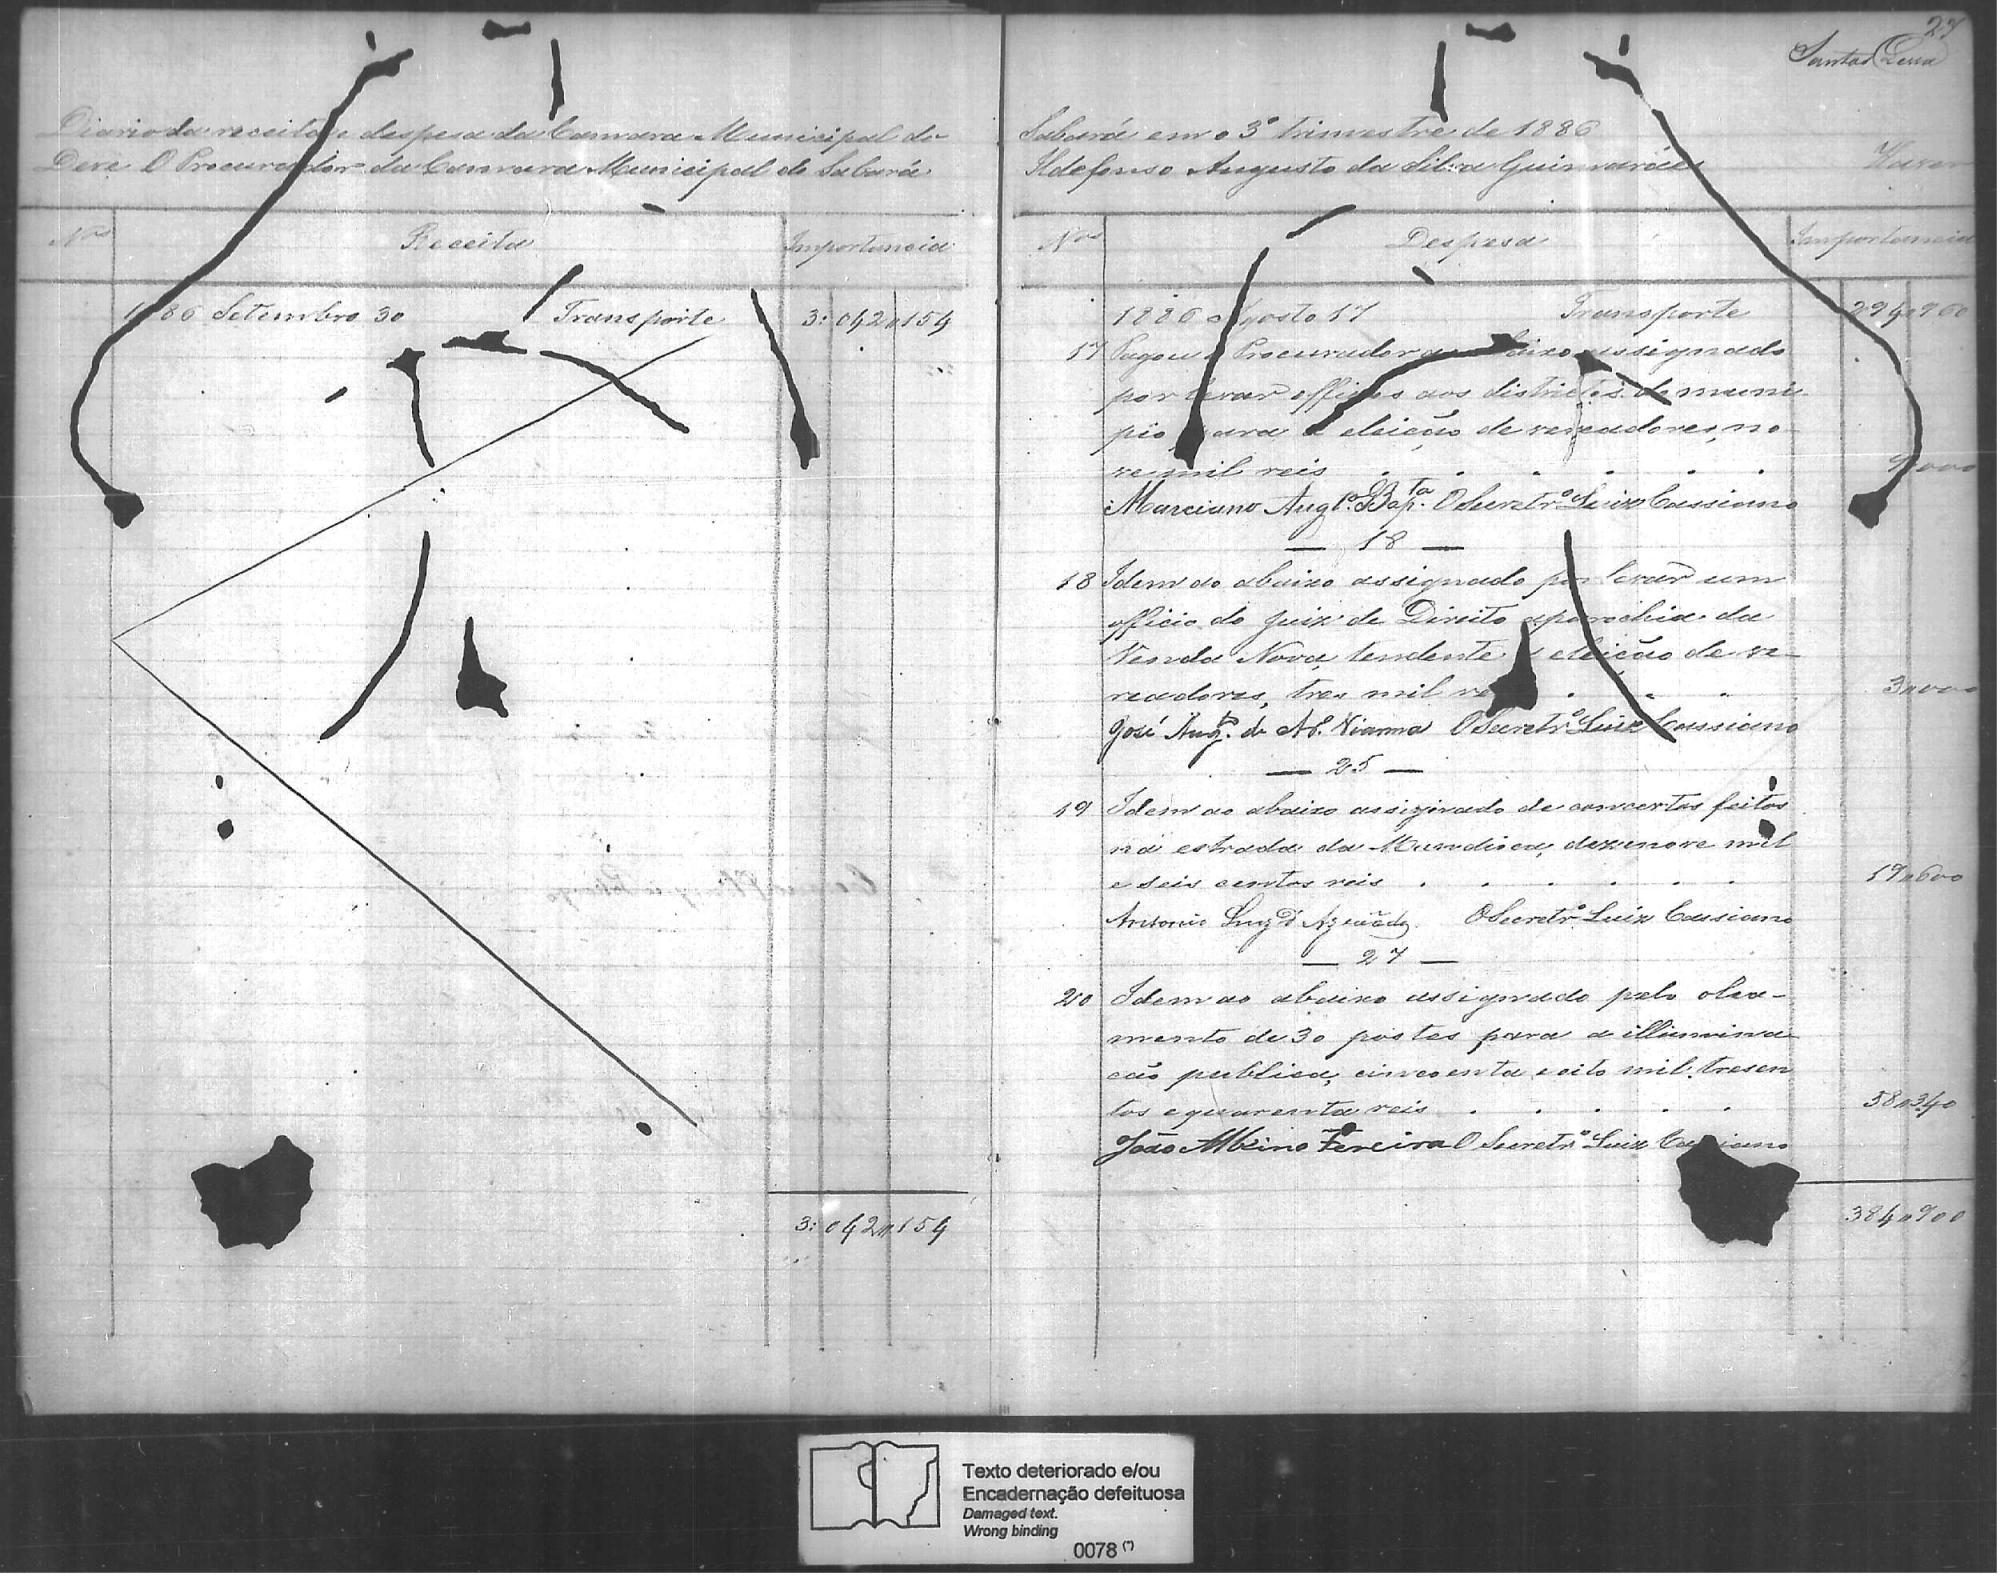 27
Santos Lessa
Diario da receita e despesa da Camara Municipal de
Deve O Procurador da Camara Municipal de Sabará
Nos Receita Importancia
1886 Setembro 30 Transporte 3:042"154
3:042"154
Sabará em o 3º trimestre de 1886
Ildefonso Augusto da Silva Guimarães Haver
Nos Despesa Importancia
1886 Agosto 17 Transporte 294"960
17 Pagou o Procurador ao abaixo assignado
por levar officios aos districtos do muni-
pio para a eleição de vereadores, no-
ve mil reis . . . . . . . 9"000
Marciano Augto. Bapta. O Secretrº Luiz Cassiano
— 18 —
18 Idem ao abaixo assignado por levar um
officio do Juiz de Direito a parochia da
Venda Nova, tendente a eleição de ve-
readores, tres mil reis . . . . 3"000
José Augto. de Vianna O Secretrº Luiz Cassiano
— 25 —
19 Idem ao abaixo assignado de concertos feitos
na estrada da dezenove mil
e seis centos reis . . . . . . 19"600
Antonio O Secretrº Luiz Cassiano
— 27 —
20 Idem ao abaixo assignado pelo olea-
mento de 30 postes para a illumina
ção publica, cincoenta e oito mil tresen
tos e quarenta reis . . . . . 58"340
João Albino Ferreira O Secretrº Luiz Cassiano
384"900
Texto deteriorado e/ou
Encadernação defeituosa
Damaged text.
Wrong binding
0078 (*)